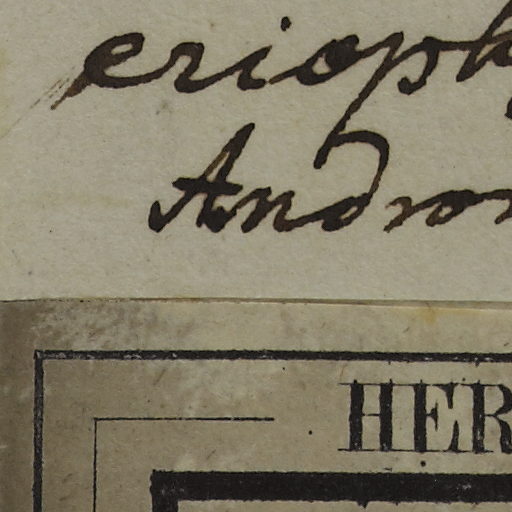 erioph
Andror
HER